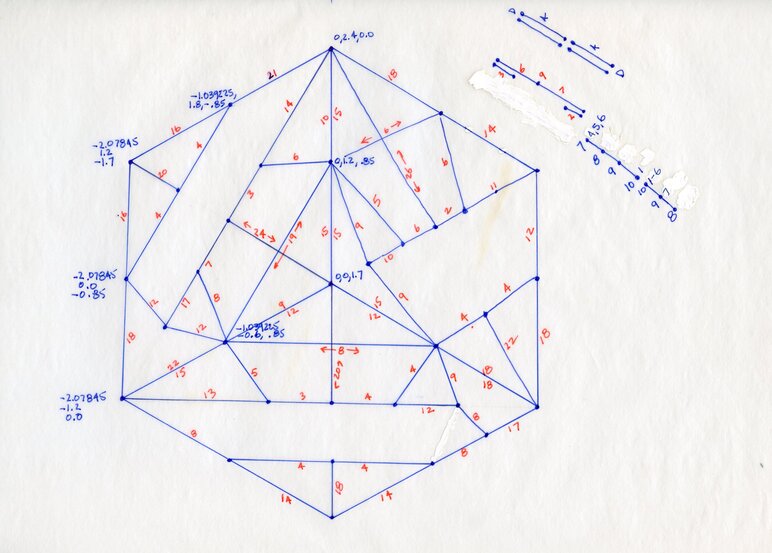 0,2.4,0.0
-1.039225,
1.8,-.85
21
18
14
10 15
6
26
16
4
14
-2.07845
1.2
-1.7
20
6
0,1.2, .85
6
11
3
5
2
16
4
9
6
12
24
19
15 15
10
7
0,0,1.7
-2.07845
0.0
-0.85
12
17
8
9
12
15
12
9
4
4
18
12
-1.039225
-0.6, .85
22
18
8
20
22
15
5
4
9
18
18
-2.07845
-1.2
0.0
13
3
4
12
8
17
8
4
4
8
14
18
14
D
*
*
D
6
3
9
7
2
4,5,6
7
8
9
10
1
10
1-6
9
7
8